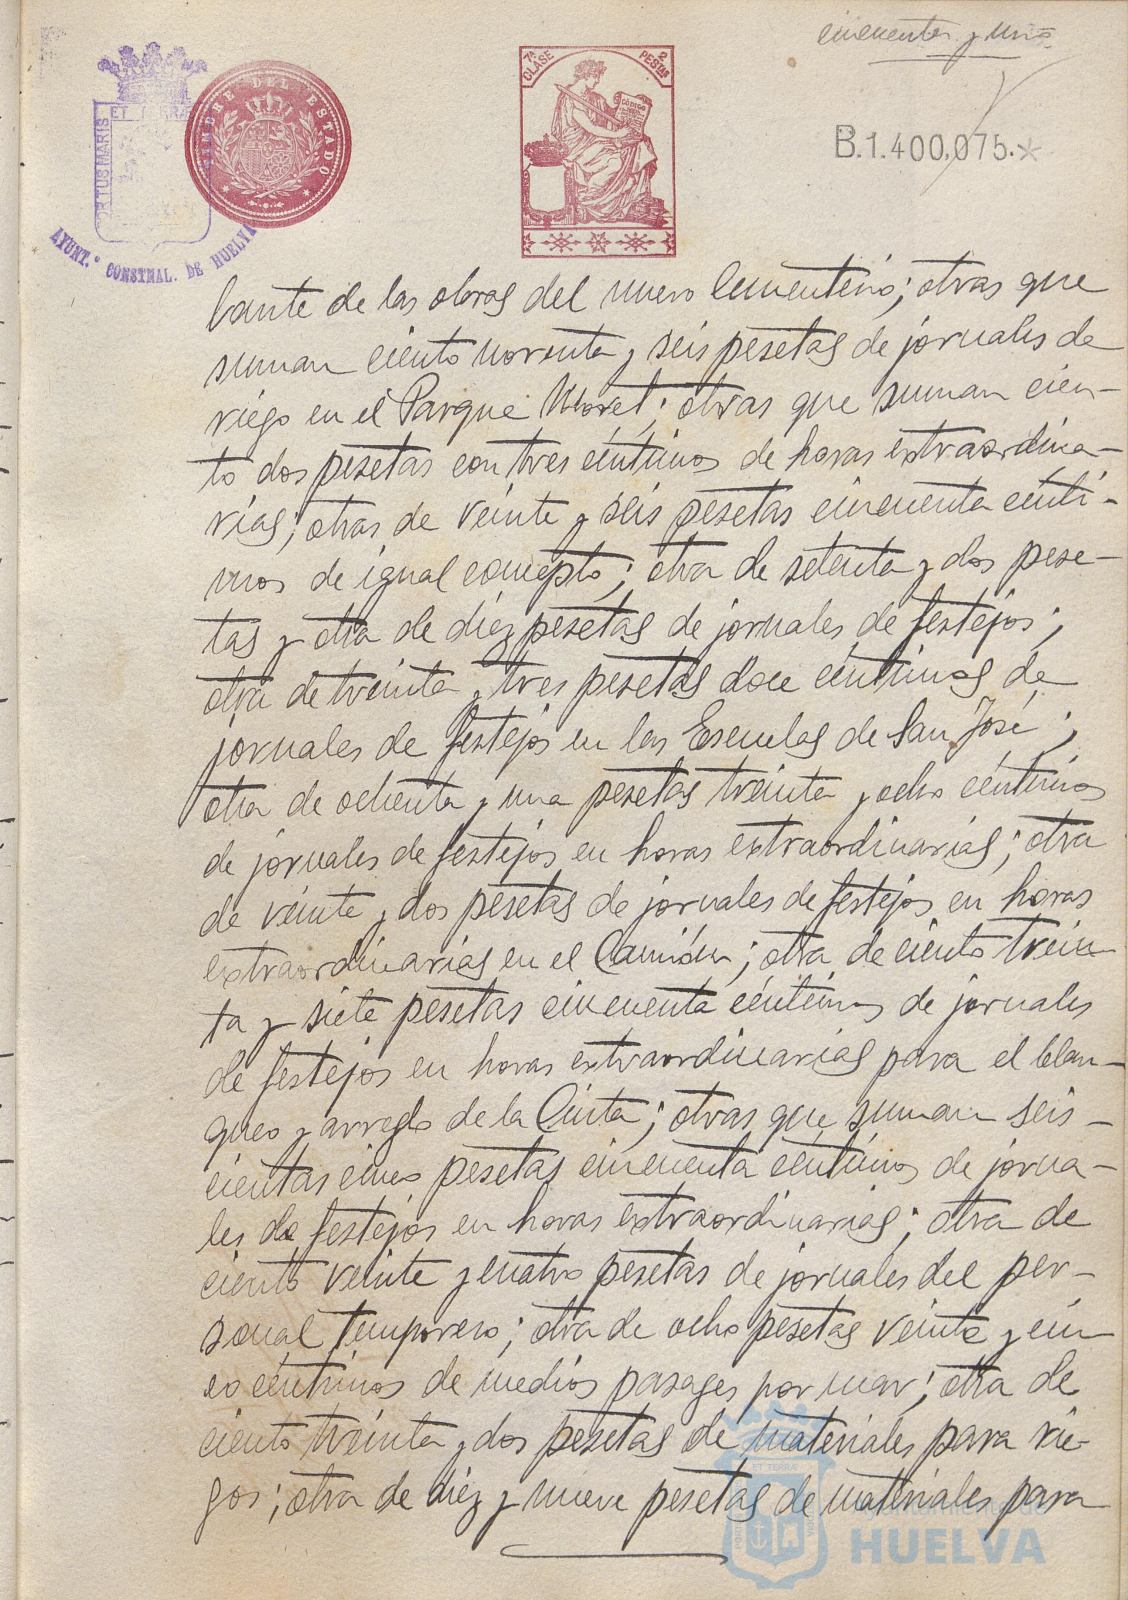 cincuenta y uno
7ª CLASE
2 PESTAS
CÓDIGO
TIMBRE DEL ESTADO
PORTUS MARIS ET TERRAE
AYUNT.º CONSTNAL. DE HUELVA
B.1.400,075.*
lante de las obras del nuevo Cementerio; otras que
suman ciento noventa y seis pesetas de jornales de
riego en el Parque Moret; otras que suman cien-
to dos pesetas con tres céntimos de horas extraordina-
rias; otras de veinte y seis pesetas cincuenta cénti-
mos de igual concepto; otra de setenta y dos pese-
tas y otra de diez pesetas de jornales de festejos;
otra de treinta y tres pesetas doce céntimos de
jornales de festejos en las Escuelas de San José;
otra de ochenta y una pesetas treinta y ocho céntimos
de jornales de festejos en horas extraordinarias; otra
de veinte y dos pesetas de jornales de festejos en horas
extraordinarias en el Camión; otra de ciento trein-
ta y siete pesetas cincuenta céntimos de jornales
de festejos en horas extraordinarias para el blan-
queo y arreglo de la Cinta; otras que suman seis-
cientas cinco pesetas cincuenta céntimos de jorna-
les de festejos en horas extraordinarias; otra de
ciento veinte y cuatro pesetas de jornales del per-
sonal temporero; otra de ocho pesetas veinte y cin-
co céntimos de medios pasages por mar; otra de
ciento treinta y dos pesetas de materiales para rie-
gos; otra de diez y nueve pesetas de materiales para
Ayuntamiento de
HUELVA